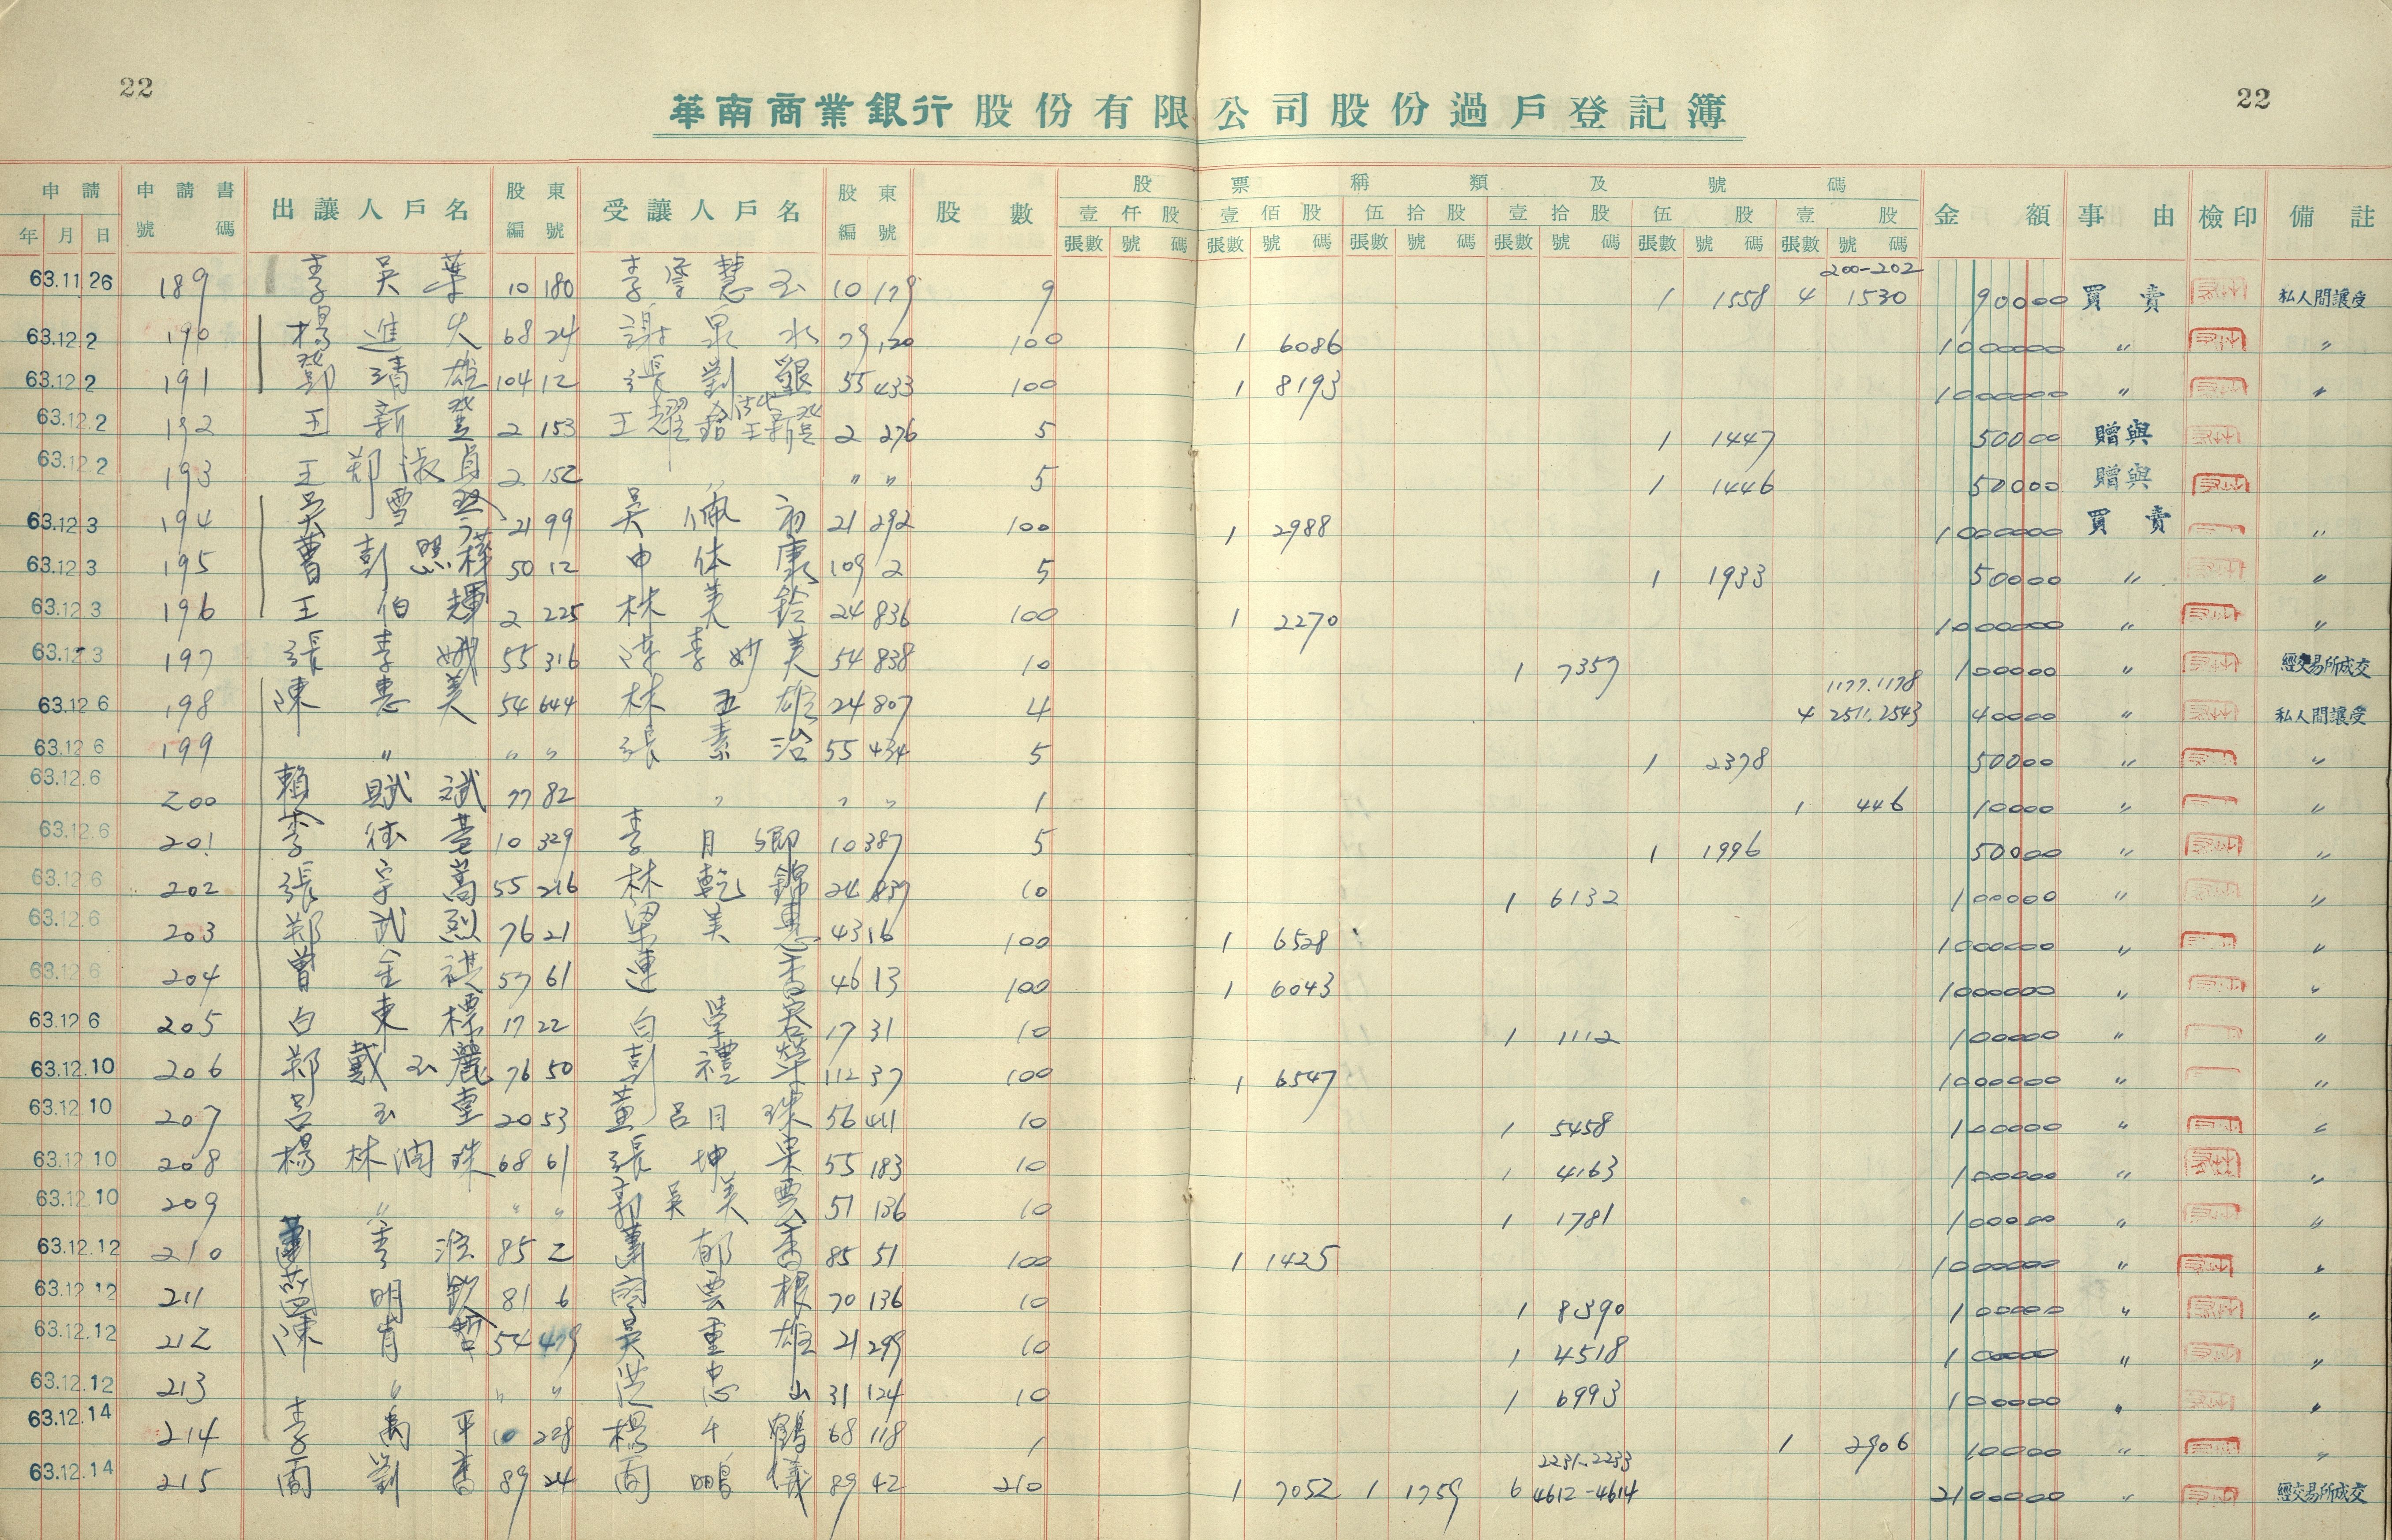 22 22
華南商業銀行股份有限公司股份過戶登記簿
申請 申請書 出讓人戶名 股東 受讓人戶名 股東 股數 股票稱類及號碼 金額 事由 檢印 備註
年 月 日 號碼 編號 編號 壹仟股 壹佰股 伍拾股 壹拾股 伍股 壹股
張數 號碼 張數 號碼 張數 號碼 張數 號碼 張數 號碼 張數 號碼
200-202
63.11.26 189 李吳華 10 180 李 慧玉 10 179 9 1 1558 4 1530 90000 買賣 私人間讓受
63.12.2 190 楊進 68 24 謝泉水 79 120 100 1 6086 1000000 〃 〃
63.12.2 191 鄧靖雄 104 12 張劉 55 433 100 1 8193 1000000 〃 〃
63.12.2 192 王新登 2 153 王耀 王新登 2 276 5 1 1447 50000 贈與
63.12.2 193 王鄭淑貞 2 152 〃 〃 〃 5 1 1446 50000 贈與
63.12.3 194 吳雪 21 99 吳佩 21 292 100 1 2988 1000000 買賣 〃
63.12.3 195 曹彭照 50 12 申体康 109 2 5 1 1933 50000 〃 〃
63.12.3 196 王伯輝 2 225 林美鈴 24 836 100 1 2270 1000000 〃 〃
63.12.3 197 張李娥 55 316 陳李妙美 54 838 10 1 7357 100000 〃 經交易所成交
1177.1178
63.12.6 198 陳惠美 54 644 林五雄 24 807 4 4 2511.2543 40000 〃 私人間讓受
63.12.6 199 〃 〃 〃 張素治 55 434 5 1 2378 50000 〃 〃
63.12.6 200 賴賦斌 77 82 〃 〃 〃 1 1 446 10000 〃 〃
63.12.6 201 李 10 329 李月卿 10 387 5 1 1996 50000 〃 〃
63.12.6 202 張宗嵩 55 216 林乾錦 24 837 10 1 6132 100000 〃 〃
63.12.6 203 鄭武烈 76 21 梁美惠 43 16 100 1 6528 1000000 〃 〃
63.12.6 204 曾金祺 57 61 連香 46 13 100 1 6043 1000000 〃 〃
63.12.6 205 白東標 17 22 白學 17 31 10 1 1112 100000 〃 〃
63.12.10 206 鄭戴玉麗 76 50 彭禮華 112 37 100 1 6547 1000000 〃 〃
63.12.10 207 呂玉 20 53 黃呂月珠 56 411 10 1 5458 100000 〃 〃
63.12.10 208 楊林潤珠 68 61 張坤 55 183 10 1 4163 100000 〃 〃
63.12.10 209 〃 〃 〃 郭吳美雲 51 136 10 1 1781 100000 〃 〃
63.12.12 210 蕭 85 2 蕭郁香 85 51 100 1 1425 1000000 〃 〃
63.12.12 211 明 81 6 雲根 70 136 10 1 8390 100000 〃 〃
63.12.12 212 陳肯哲 54 479 吳重雄 21 299 10 1 4518 100000 〃 〃
63.12.12 213 〃 〃 〃 洪忠山 31 124 10 1 6993 100000 〃 〃
63.12.14 214 李禹平 10 228 楊千鶴 68 118 1 1 2906 10000 〃 〃
2231-2233
63.12.14 215 周劉香 89 24 周鵬儀 89 42 210 1 7052 1 1759 6 4612-4614 2100000 〃 經交易所成交